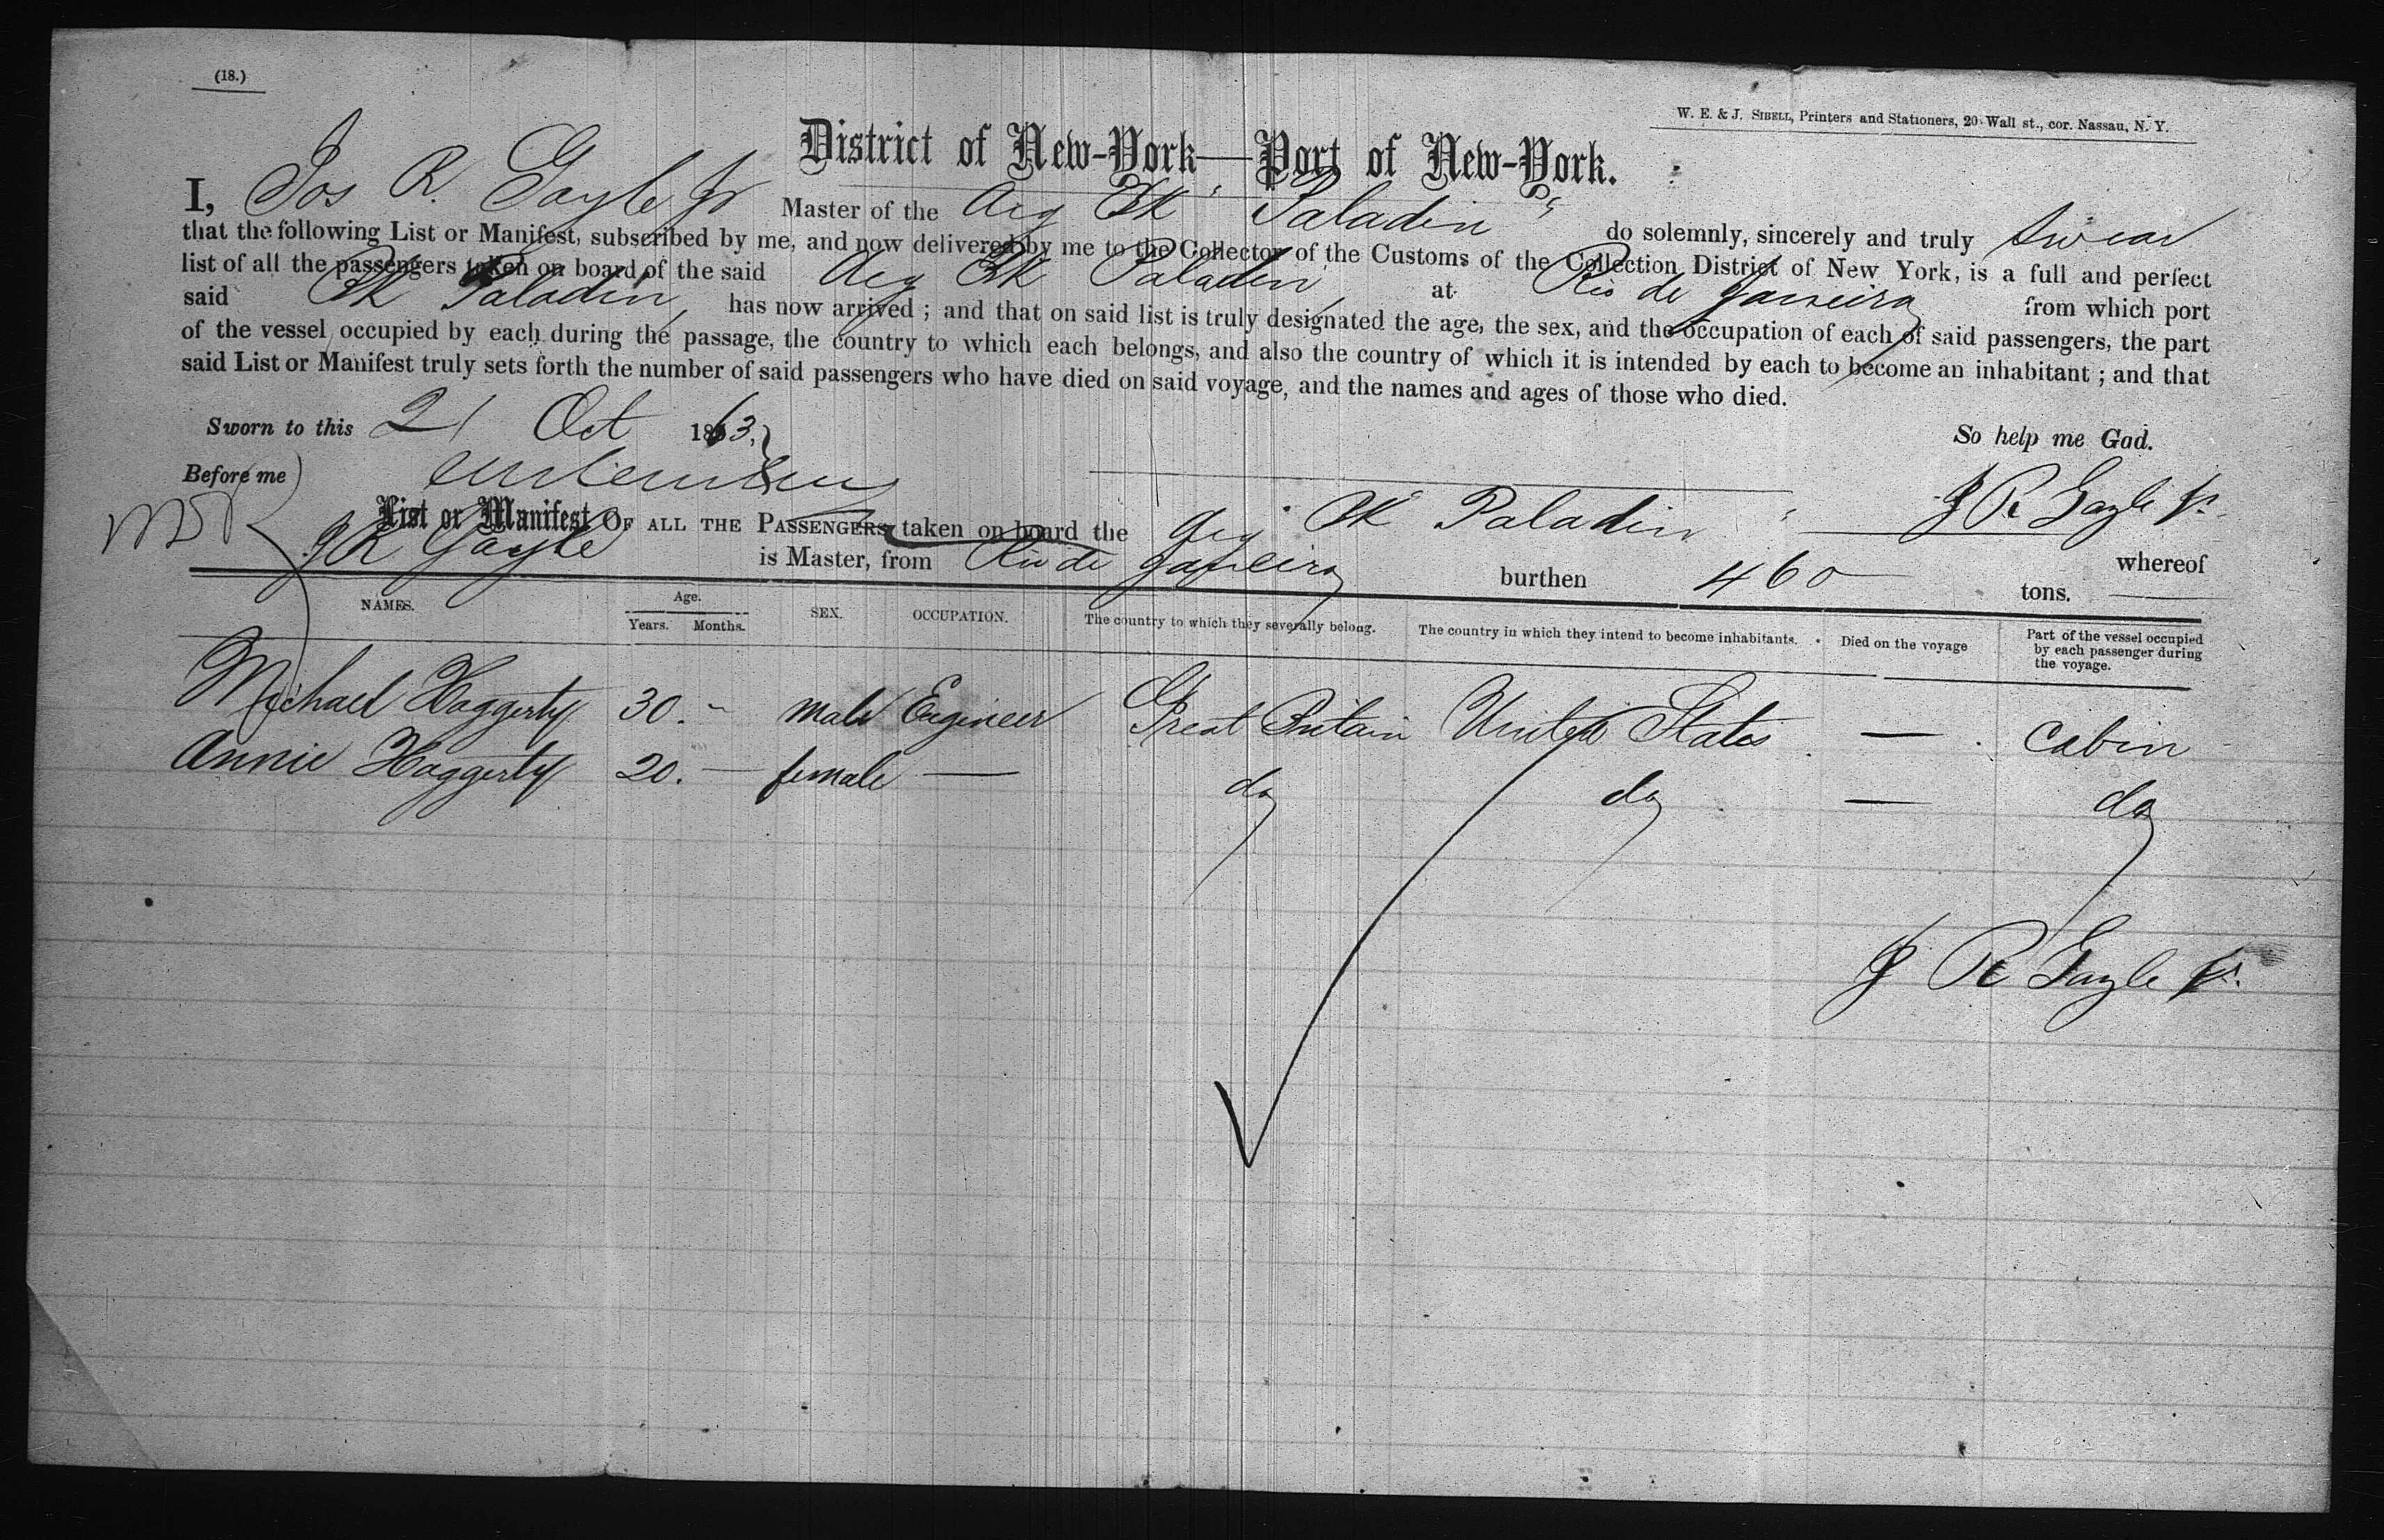 (18.)
W. E. & J. SIBELL, Printers and Stationers, 20 Wall st., cor. Nassau, N. Y.
District of New-York—Port of New-York.
I, Jos R. Gayle Jr Master of the Arg Bk Paladin do solemnly, sincerely and truly swear
that the following List or Manifest, subscribed by me, and now delivered by me to the Collector of the Customs of the Collection District of New York, is a full and perfect
list of all the passengers taken on board of the said Arg Bk Paladin at Rio de Janeiro from which port
said Bk Paladin has now arrived ; and that on said list is truly designated the age, the sex, and the occupation of each of said passengers, the part
of the vessel occupied by each during the passage, the country to which each belongs, and also the country of which it is intended by each to become an inhabitant ; and that
said List or Manifest truly sets forth the number of said passengers who have died on said voyage, and the names and ages of those who died.
Sworn to this 21 Oct 1863, So help me God.
Before me J R Gayle Jr.
List or Manifest OF ALL THE PASSENGERS taken on board the Arg Bk Paladin whereof
J R Gayle is Master, from Rio de Janeiro burthen 460 tons.
NAMES. Age. Years. Months. SEX. OCCUPATION. The country to which they severally belong. The country in which they intend to become inhabitants. Died on the voyage Part of the vessel occupied by each passenger during the voyage.
Michael Haggerty 30. - male Engineer Great Britain United States — Cabin
Annie Haggerty 20. — female — do do — do
J R Gayle Jr.